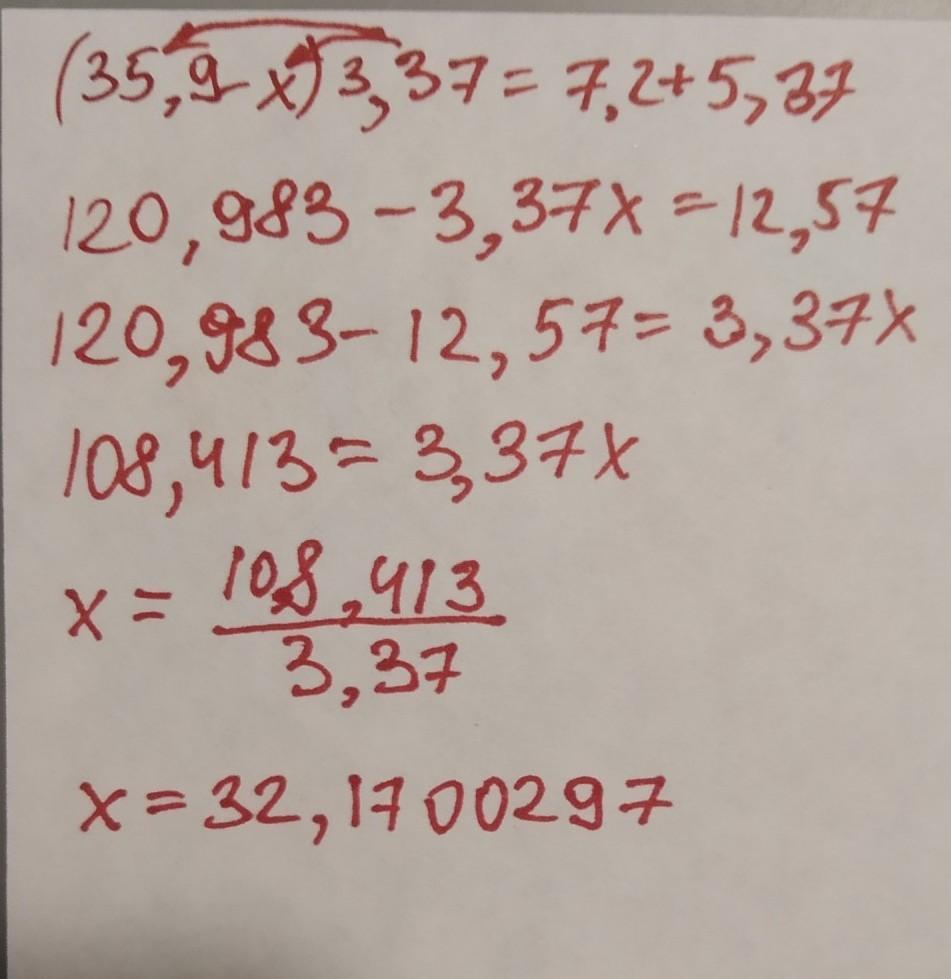 (35,9-x)3,37=7,2+5,37
120,983-3,37x=12,57
120,983-12,57=3,37x
108,413=3,37x
x=108,413/3,37
x=32,1700297